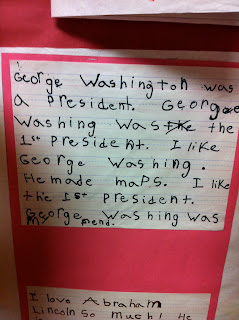 George Washington was
a President. George
Washing was the the
1st President. I like
George Washing.
He made maps. I like
the 1st President.
George Washing was
my
I love Abraham
Lincoln so much! He